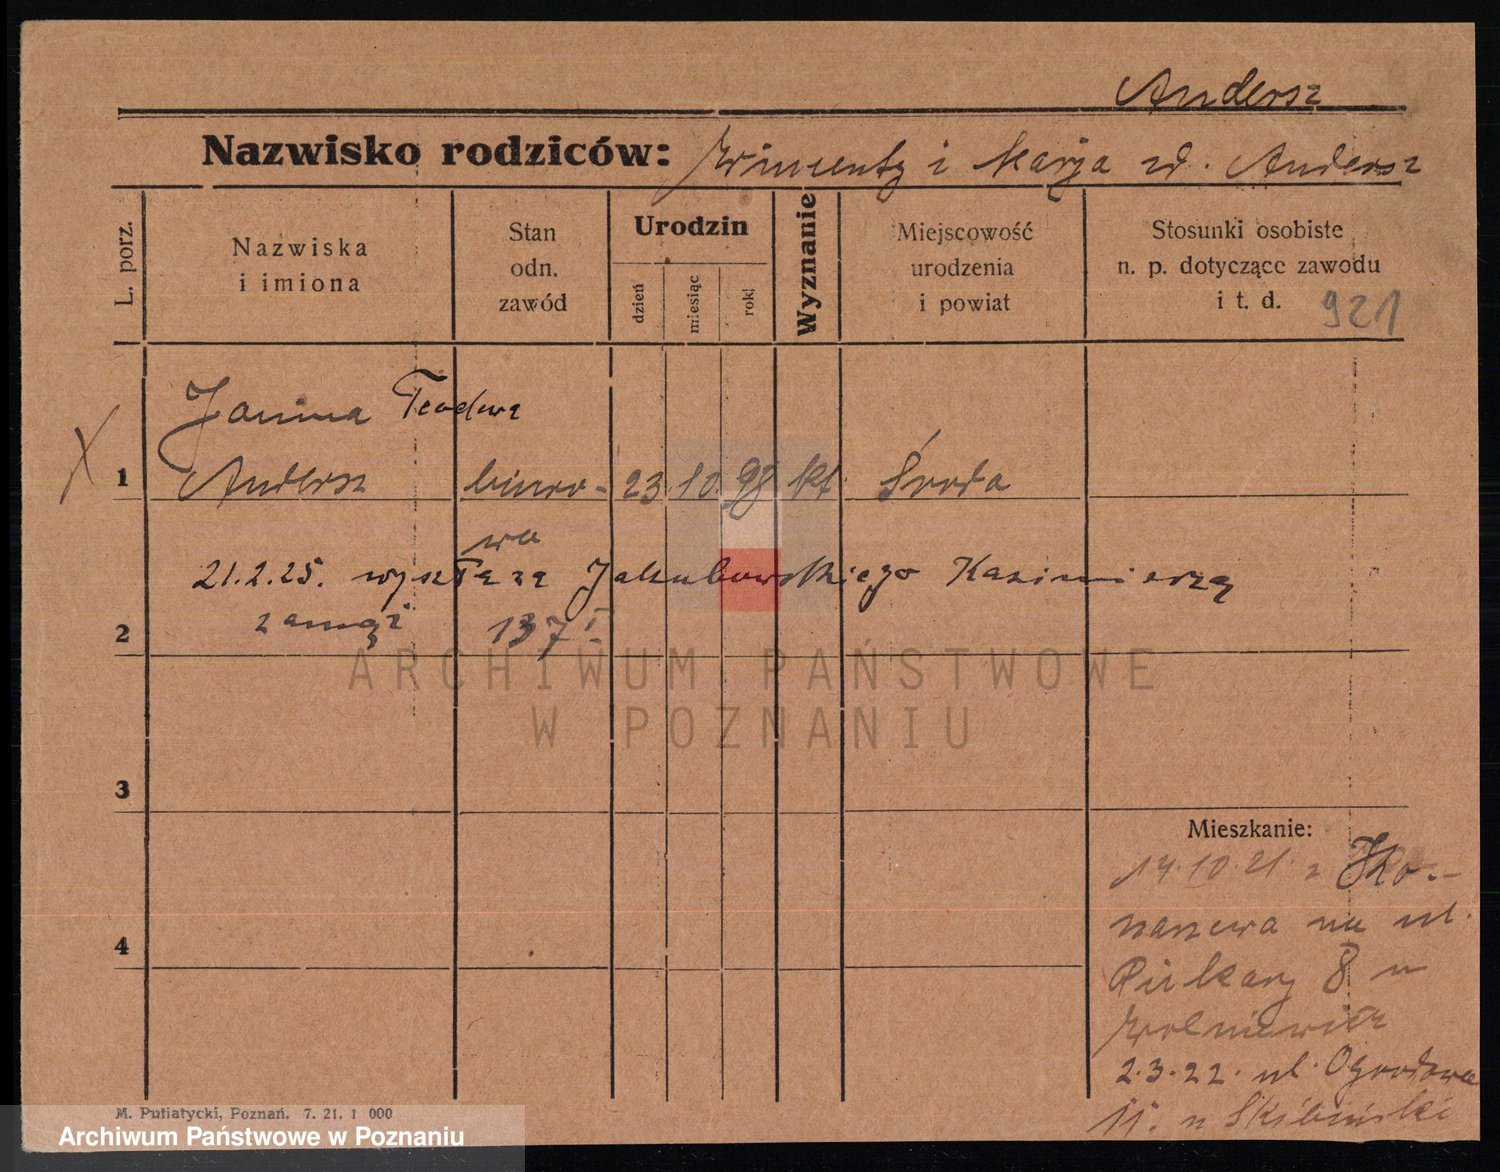 Andersz
Nazwisko rodziców: Wincenty i Marja zd. Andersz
L. porz.
Nazwiska
i imiona
Stan
odn.
zawód
Urodzin
dzień
miesiąc
rok
Wyznanie
Miejscowość
urodzenia
i powiat
Stosunki osobiste
n. p. dotyczące zawodu
i t. d.
921
Janina Teodora
X 1 Andersz biuro- 23 10 98 kt. Środa
wa
21.2.25. wyszła za Jakubowskiego Kazimierza
2 zamąż 137 I
3
4
Mieszkanie:
14.10.21. z
na ul.
Piekary 8 u
Wolniewicz
2.3.22. ul. Ogrodowa
11. u Skibiński
M. Putiatycki, Poznań. 7. 21. 1 000
ARCHIWUM PAŃSTWOWE
W POZNANIU
Archiwum Państwowe w Poznaniu